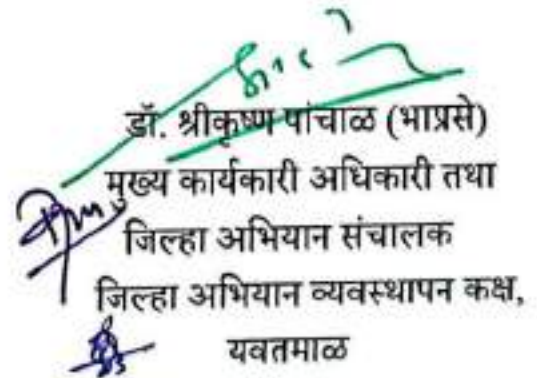 डॉ. श्रीकृष्ण पांचाळ (भाप्रसे)
मुख्य कार्यकारी अधिकारी तथा
जिल्हा अभियान संचालक
जिल्हा अभियान व्यवस्थापन कक्ष,
यवतमाळ